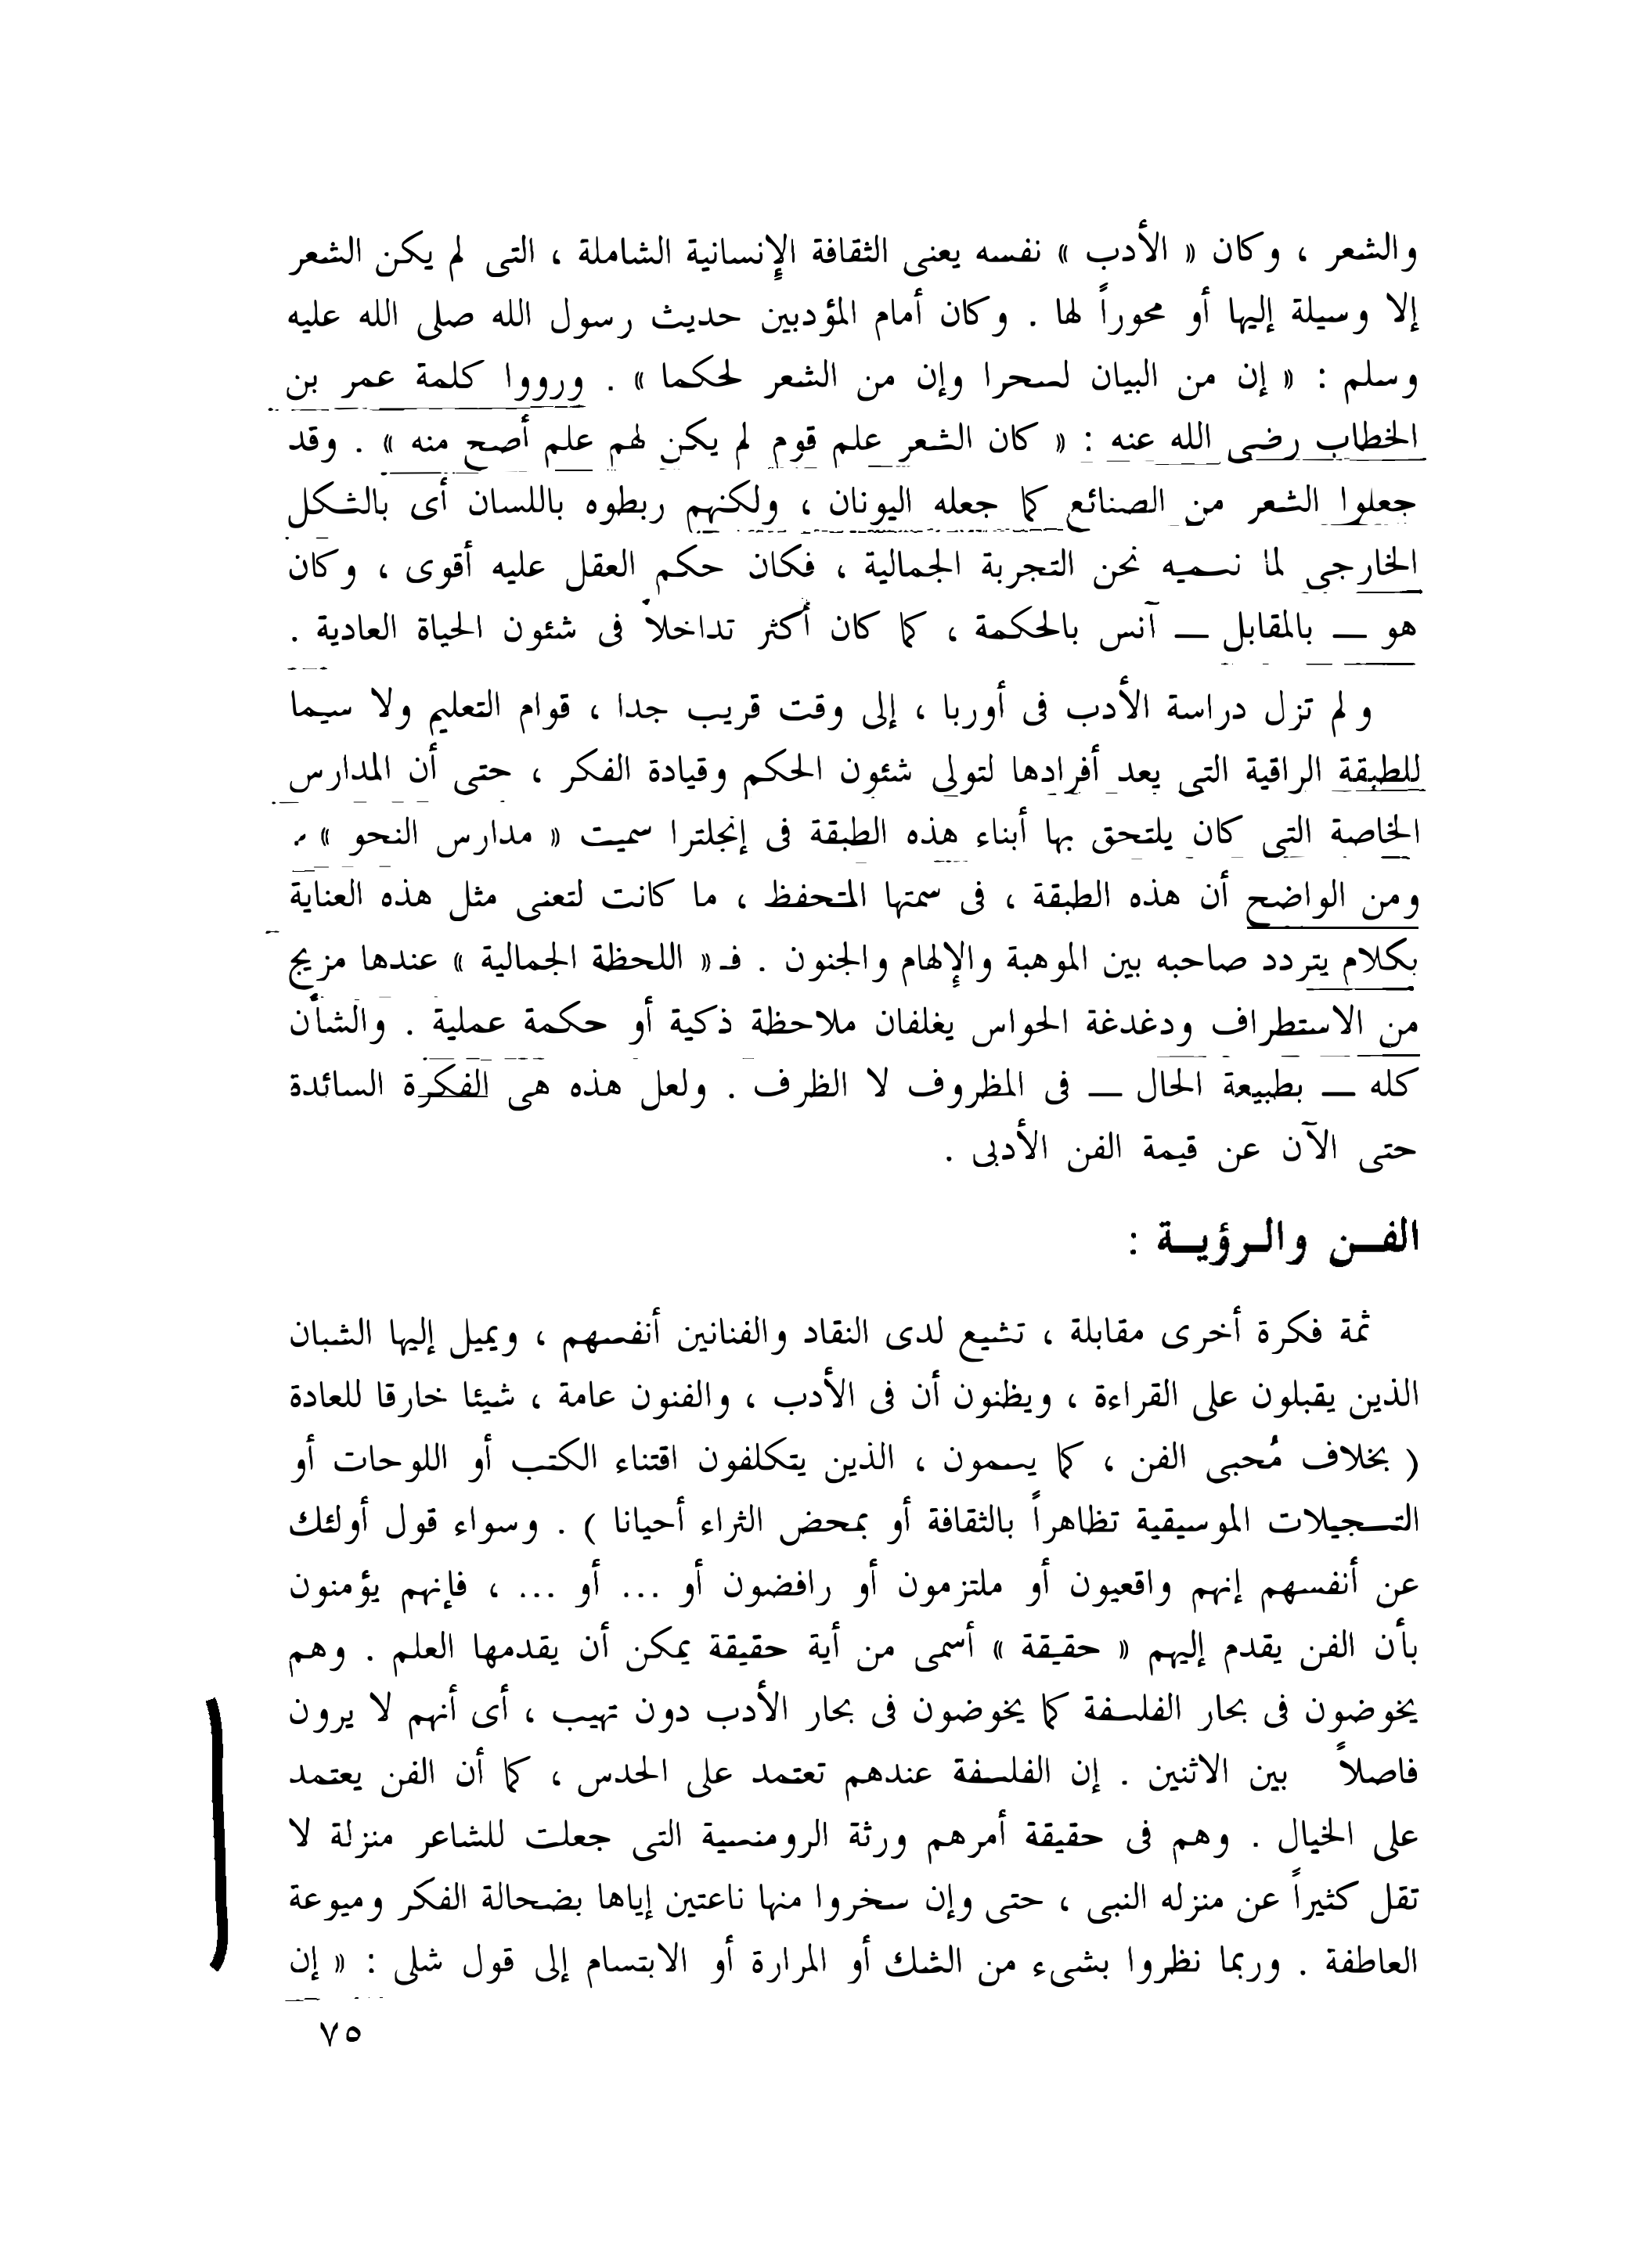 والشعر ، وكان « الأدب » نفسه يعنى الثقافة الإنسانية الشاملة ، التى لم يكن الشعر
إلا وسيلة إليها أو محوراً لها . وكان أمام المؤدبين حديث رسول الله صلى الله عليه
وسلم : « إن من البيان لسحرا وإن من الشعر لحكما » . ورووا كلمة عمر بن
الخطاب رضى الله عنه : « كان الشعر علم قوم لم يكن لهم علم أصح منه » . وقد
جعلوا الشعر من الصنائع كما جعله اليونان ، ولكنهم ربطوه باللسان أى بالشكل
الخارجى لما نسميه نحن التجربة الجمالية ، فكان حكم العقل عليه أقوى ، وكان
هو — بالمقابل — آنس بالحكمة ، كما كان أكثر تداخلاً فى شئون الحياة العادية .
ولم تزل دراسة الأدب فى أوربا ، إلى وقت قريب جدا ، قوام التعليم ولا سيما
للطبقة الراقية التى يعد أفرادها لتولى شئون الحكم وقيادة الفكر ، حتى أن المدارس
الخاصة التى كان يلتحق بها أبناء هذه الطبقة فى إنجلترا سميت « مدارس النحو » .
ومن الواضح أن هذه الطبقة ، فى سمتها المتحفظ ، ما كانت لتعنى مثل هذه العناية
بكلام يتردد صاحبه بين الموهبة والإلهام والجنون . فـ « اللحظة الجمالية » عندها مزيج
من الاستطراف ودغدغة الحواس يغلفان ملاحظة ذكية أو حكمة عملية . والشأن
كله — بطبيعة الحال — فى المظروف لا الظرف . ولعل هذه هى الفكرة السائدة
حتى الآن عن قيمة الفن الأدبى .
الفـن والـرؤيـة :
ثمة فكرة أخرى مقابلة ، تشيع لدى النقاد والفنانين أنفسهم ، ويميل إليها الشبان
الذين يقبلون على القراءة ، ويظنون أن فى الأدب ، والفنون عامة ، شيئا خارقا للعادة
( بخلاف مُحبى الفن ، كما يسمون ، الذين يتكلفون اقتناء الكتب أو اللوحات أو
التسجيلات الموسيقية تظاهراً بالثقافة أو بمحض الثراء أحيانا ) . وسواء قول أولئك
عن أنفسهم إنهم واقعيون أو ملتزمون أو رافضون أو ... أو ... ، فإنهم يؤمنون
بأن الفن يقدم إليهم « حقيقة » أسمى من أية حقيقة يمكن أن يقدمها العلم . وهم
يخوضون فى بحار الفلسفة كما يخوضون فى بحار الأدب دون تهيب ، أى أنهم لا يرون
فاصلاً بين الاثنين . إن الفلسفة عندهم تعتمد على الحدس ، كما أن الفن يعتمد
على الخيال . وهم فى حقيقة أمرهم ورثة الرومنسية التى جعلت للشاعر منزلة لا
تقل كثيراً عن منزله النبى ، حتى وإن سخروا منها ناعتين إياها بضحالة الفكر وميوعة
العاطفة . وربما نظروا بشىء من الشك أو المرارة أو الابتسام إلى قول شلى : « إن
٧٥